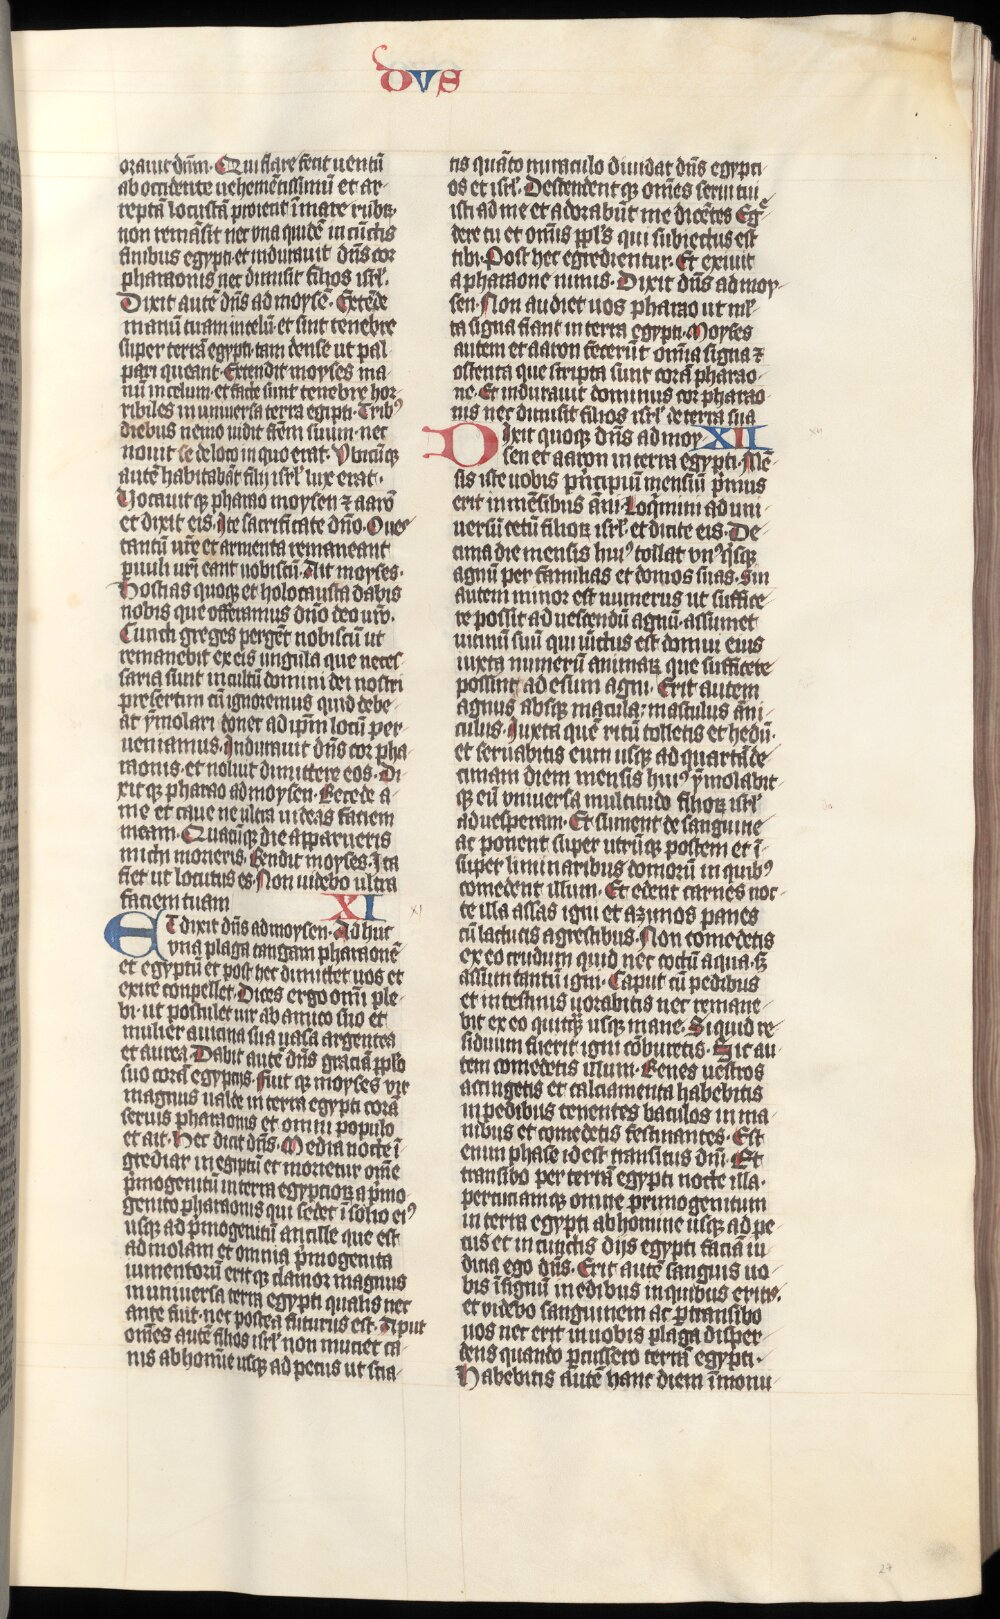 DVS
orauit dn̄m. Qui flare fecit uentū
ab occidente uehemētissimū et ar-
reptā locustā proiecit ī mare rubꝝ.
non remāsit nec vna quidē in cūctis
finibus egypti. et indurauit dn̄s cor
pharaonis nec dimisit filios isrl̄.
Dixit autē dn̄s ad moysē. Extēde
manū tuam in celū. et sint tenebre
super terrā egypti. tam dense ut pal
pari queant. Extendit moyses ma
nū in celum. et facte sunt tenebre hor-
ribiles in uniuersa terra egipti. Tribꝰ
diebus nemo uidit frēm suum. nec
nouit se de loco in quo erat. Vbicūqꝫ
autē habitabāt filij isrl̄ lux erat.
Vocauitqꝫ pharao moysen ⁊ aarō
et dixit eis. Ite sacrificate dn̄o. Oues
tantū vr̄e et armenta remaneant
pūuli vr̄i eant uobiscū. Ait moyses.
Hostias quoqꝫ et holocausta dabis
nobis que offeramus dn̄o deo nr̄o.
Cuncti greges pergēt nobiscū ut
remanebit ex eis ungula que neces-
saria sunt in cultū domini dei nostri
presertim cū ignoremus quid debe-
at ym̄olari donec ad ip̄m locū per
ueniamus. Indurauit dn̄s cor pha
raonis. et noluit dimittere eos. Di
xitqꝫ pharao ad moysen. Recede a
me et caue ne ultra uideas faciem
meam. Quacūqꝫ die apparueris
michi morieris. Rendit moyses. Ita
fiet ut locutus es. Non uidebo ultra
faciem tuam XI
Et dixit dn̄s ad moysen. Adhuc
vna plaga tangam pharaonē
et egyptū et post hec dimittet uos et
exire conpellet. Dices ergo om̄i ple-
bi. ut postulet uir ab amico suo et
mulier a uicina sua uasa argentea
et aurea. Dabit autē dn̄s graciā pplo
suo corā egypcijs. Fuitqꝫ moyses vir
magnus ualde in terra egypti corā
seruis pharaonis et omni populo
et ait. Hec dicit dn̄s. Media nocte ī
grediar in egiptū et morietur om̄e
pͥmogenitū in terra egypcioꝝ a pͥmo
genito pharaonis qui sedet ī solio eiꝰ
usqꝫ ad pͥmogenitū ancille que est
ad molam et omnia pͥmogenita
iumentorū eritqꝫ clamor magnus
in uniuersa terra egypti qualis nec
ante fuit. nec postea futurus est. Aput
om̄es autē filios isrl̄ non muciet ca-
nis ab homīe usqꝫ ad pecus ut scia-
tis quāto miraculo diuidat dn̄s egypci-
os et isrl̄. Descendentqꝫ om̄es serui tui
isti ad me et adorabūt me dicētes Egͬ
dere tu et om̄is ppl̄s qui subiectus est
tibi. Post hec egredientur. Et exiuit
a pharaone nimis. Dixit dn̄s ad moy-
sen. Non audiet uos pharao ut ml̄-
ta signa fiant in terra egypti. Moyses
autem et aaron fecerūt om̄ia signa ⁊
ostenta que scripta sunt corā pharao-
ne. Et indurauit dominus cor pharao
nis nec dimisit filios isrl̄ de terra sua
Dixit quoqꝫ dn̄s ad moy XII
sen et aaron in terra egypti. Mē-
sis iste uobis pͥncipiū mensiū pͥmus
erit in mēsibus ān̄i. Loqͥmini ad uni-
uersū cetū filioꝝ isrl̄. et dicite eis. De-
cima die mensis huiꝰ tollat vnꝰqͥsqꝫ
agnū per familias et domos suas. Sin
autem minor est numerus ut suffice-
re possit ad uescendū agnū. assumet
uicinū suū qui iūctus est domui eius
iuxta numerū animaꝝ que sufficere
possint ad esum agni. Erit autem
agnus absqꝫ macula. masculus ān̄i-
culus. Iuxta quē ritū tolletis et hedū.
et seruabitis eum usqꝫ ad quartāde-
cimam diem mensis huiꝰ ym̄olabit-
qꝫ eū vniuersa multitudo filioꝝ isrl̄
ad uesperam. Et sument de sanguine
ac ponent super utrūqꝫ postem et ī
super liminaribus domorū in quibꝰ
comedent illum. Et edent carnes noc-
te illa assas igni et azimos panes
cū lactucis agrestibus. Non comedetis
ex eo crudum quid nec coctū aqua. sꝫ
assum tantū igni. Caput cū pedibus
et intestinis uorabitis nec remane-
bit ex eo quitqꝫ usqꝫ mane. Si quid re-
siduum fuerit igni cōburetis. Sic au-
tem comedetis illum. Renes uestros
accingetis et calciamenta habebitis
in pedibus tenentes baculos in ma-
nibus et comedetis festinantes. Est
enim phase id est transitus dn̄i. Et
transibo per terrā egypti nocte illa.
percuciamqꝫ omne primogenitum
in terra egypti ab homine usqꝫ ad pe
cus et in cunctis dijs egypti faciā iu
dicia ego dn̄s. Erit autē sanguis uo-
bis ī signū in edibus in quibus eritis.
et videbo sanguinem ac pͣtransibo
uos nec erit in uobis plaga disper-
dens quando ꝑcussero terrā egypti.
Habebitis autē hanc diem ī monu-
27